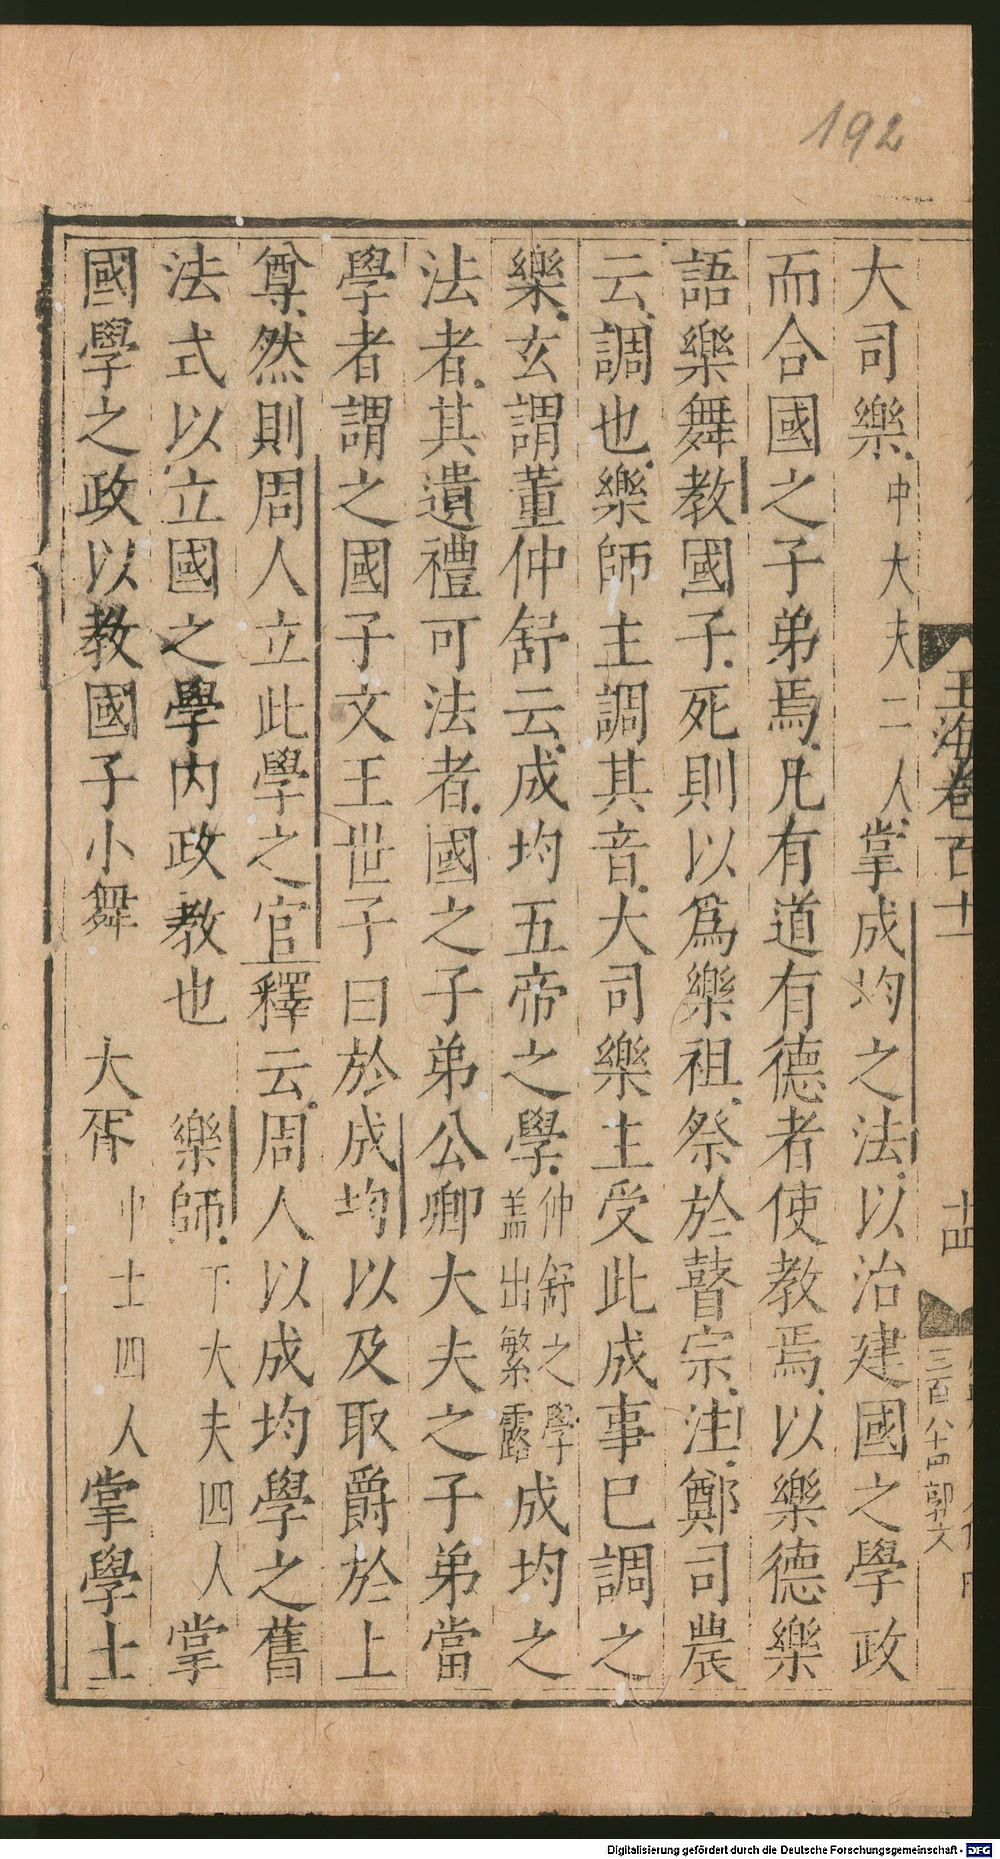 192
玉海卷百十一
十四
三百八十四郭文
大司樂中大夫二人掌成均之法以治建國之學政
而合國之子弟焉凡有道有德者使教焉以樂德樂
語樂舞教國子死則以爲樂祖祭於瞽宗注鄭司農
云調也樂師主調其音大司樂主受此成事已調之
樂玄謂董仲舒云成均五帝之學仲舒之學蓋出繁露成均之
法者其遺禮可法者國之子弟公卿大夫之子弟當
學者謂之國子文王世子曰於成均以及取爵於上
尊然則周人立此學之官釋云周人以成均學之舊
法式以立國之學內政教也　樂師下大夫四人掌
國學之政以教國子小舞　大胥中士四人掌學士
Digitalisierung gefördert durch die Deutsche Forschungsgemeinschaft - DFG